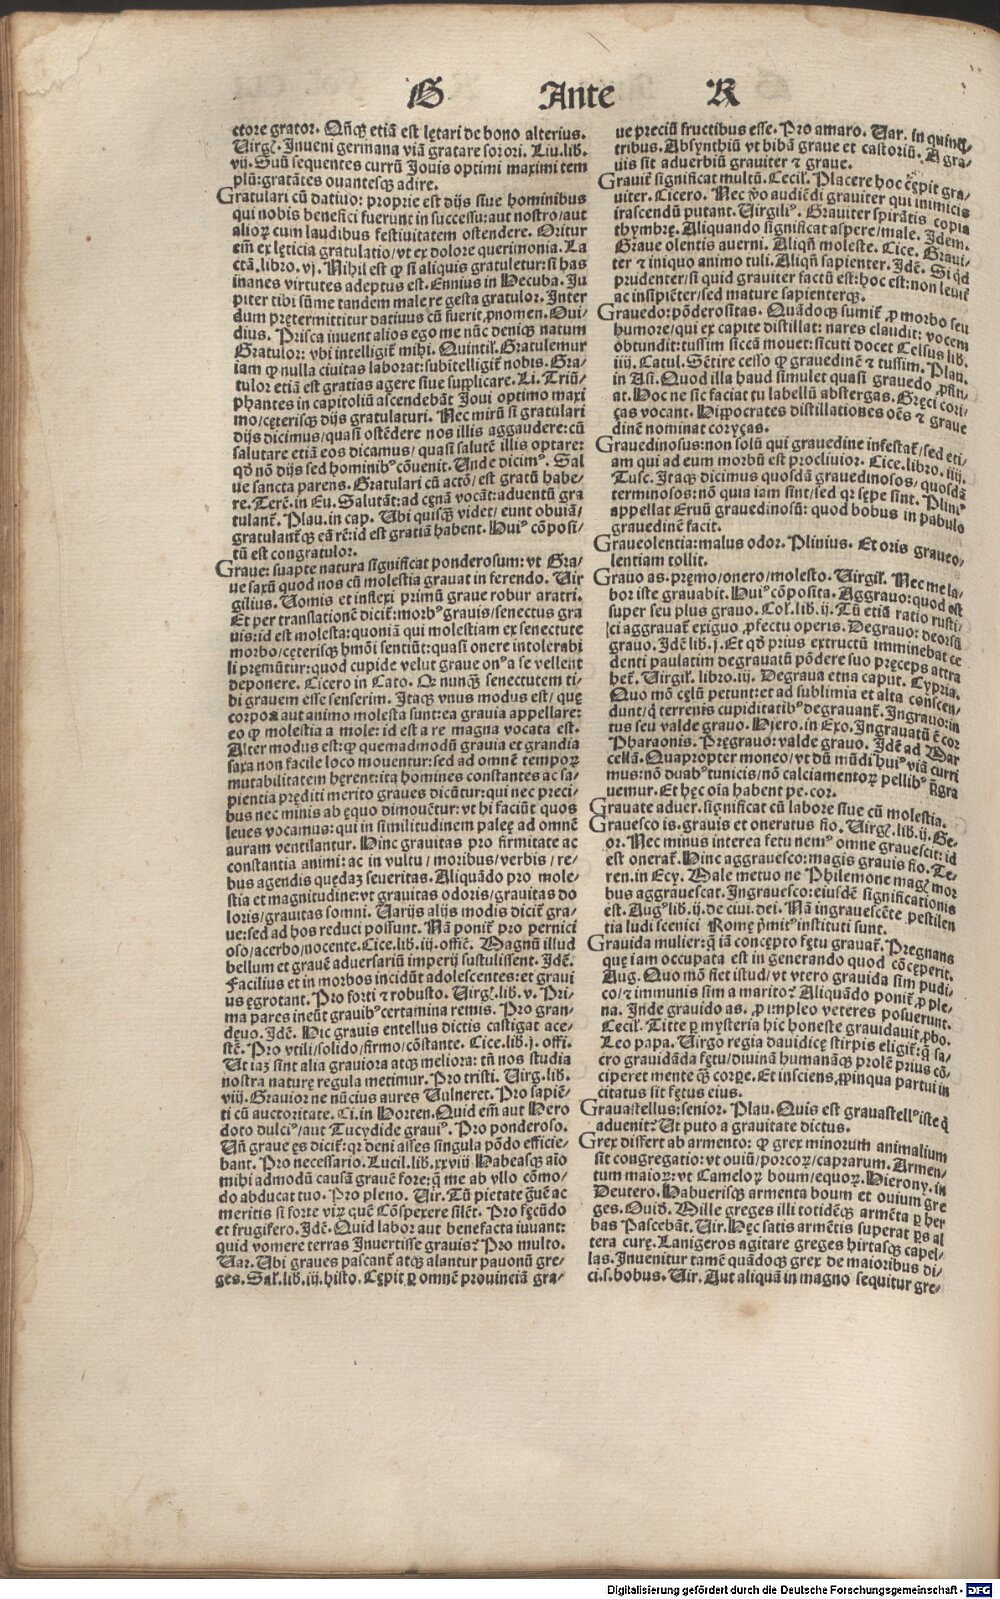 G Ante R
ctore grator. Qñꝗ etiã est lętari de bono alterius.
Virgꝉ. Inveni germana viã gratare sorori. Liu. lib.
vij. Suũ sequentes currũ Jouis optimi maximi tem
plũ: gratãtes ouantesꝗ adire.
Gratulari cũ datiuo: proprie est dijs siue hominibus
qui nobis benefici fuerunt in successu: aut nostro/aut
alioꝝ cum laudibus festiuitatem ostendere. Oritur
em̃ ex lęticia gratulatio/vt ex dolore querimonia. La
ctã. libro. vj. Nihil est ꝙ si aliquis gratuletur: si has
inanes virtutes adeptus est. Ennius in Hecuba. Ju
piter tibi sũme tandem male re gesta gratulor. Inter
dum prętermittitur datiuus cũ fuerit ꝓnomen. Oui/
dius. Prisca iuuent alios ego me nũc deniꝗ natum
Gratulor: vbi intelligit̃ mihi. Quintil. Gratulemur
iam ꝙ nulla ciuitas laborat: subĩtelligit̃ nobis. Gra/
tulor etiã est gratias agere siue supplicare. Li. Triũ/
phantes in capitoliũ ascendebãt Joui optimo maxi
mo/cęterisꝗ dijs gratulaturi. Nec mirũ si gratulari
dijs dicimus/quasi ostẽdere nos illis aggaudere: cũ
salutare etiã eos dicamus/quasi salutẽ illis optare:
qđ nõ dijs sed hominibꝰ cõuenit. Unde dicimꝰ. Sal
ue sancta parens. Gratulari cũ actõ/est gratũ habe/
re. Terẽ. in Eu. Salutãt: ad cęnã vocãt: aduentũ gra
tulant̃. Plau. in cap. Ubi quisꝗ videt/eunt obuiã/
gratulant̃ꝗ eã rẽ: id est gratiã habent. Huiꝰ cõposi/
tũ est congratulor.
Graue: suapte natura significat ponderosum: vt Gra/
ue saxũ quod nos cũ molestia grauat in ferendo. Vir
gilius. Vomis et inflexi primũ graue robur aratri.
Et per translationẽ dicit̃: morbꝰ grauis/senectus gra
uis: id est molesta: quoniã qui molestiam ex senectute
morbo/cęterisꝗ hmõi sentiũt: quasi onere intolerabi
li pręmũtur: quod cupide velut graue onꝰ a se vellent
deponere. Cicero in Cato. O nunꝗ̃ senectutem ti/
bi grauem esse senserim. Itaꝗ vnus modus est/quę
corpoꝝ aut animo molesta sunt: ea grauia appellare:
eo ꝙ molestia a mole: id est a re magna vocata est.
Alter modus est: ꝙ quemadmodũ grauia et grandia
saxa non facile loco mouentur: sed ad omnẽ tempoꝝ
mutabilitatem hęrent: ita homines constantes ac sa/
pientia pręditi merito graues dicũtur: qui nec preci/
bus nec minis ab ęquo dimouẽtur: vt hi faciũt quos
leues vocamus: qui in similitudinem paleę ad omnẽ
auram ventilantur. Hinc grauitas pro firmitate ac
constantia animi: ac in vultu/moribus/verbis/re/
bus agendis quędaz seueritas. Aliquãdo pro mole/
stia et magnitudine: vt grauitas odoris/grauitas do
loris/grauitas somni. Varijs alijs modis dicit̃ gra/
ue: sed ad hos reduci possunt. Nã ponit̃ pro pernici
oso/acerbo/nocente. Cice. lib. iij. offic̃. Magnũ illud
bellum et grauẽ aduersariũ imperij sustulissent. Idẽ.
Facilius et in morbos incidũt adolescentes: et graui
us ęgrotant. Pro forti ⁊ robusto. Virgꝉ. lib. v. Pri/
ma pares ineũt grauibꝰ certamina remis. Pro gran/
dęuo. Idẽ. Hic grauis entellus dictis castigat ace/
stẽ. Pro vtili/solido/firmo/cõstante. Cice. lib. j. offi.
Ut iaz sint alia grauiora atꝗ meliora: tñ nos studia
nostra naturę regula metimur. Pro tristi. Virg. lib.
viij. Grauior ne nũcius aures Vulneret. Pro sapiẽ/
ti cũ auctoritate. Ci. in Horten. Quid em̃ aut Hero
doto dulciꝰ/aut Tucydide grauiꝰ. Pro ponderoso.
Uñ graue ęs dicit̃: qr deni asses singula põdo efficie/
bant. Pro necessario. Lucil. lib. xxviij. Habeasꝗ aĩo
mihi admodũ causã grauẽ fore: q̃ me ab vllo cõmo/
do abducat tuo. Pro pleno. Vir. Tũ pietate g̃uẽ ac
meritis si forte viꝝ quẽ Cõspexere silẽt. Pro fęcũdo
et frugifero. Idẽ. Quid labor aut benefacta iuuant:
quid vomere terras Inuertisse grauis? Pro multo.
Var. Ubi graues pascant̃ atꝗ alantur pauonũ gre/
ges. Sal. lib. iij. histo. Cępit ꝑ omnẽ prouinciã gra/
ue preciũ fructibus esse. Pro amaro. Var. in quinq̃/
tribus. Absynthiũ vt bibã graue et castoriũ. A gra/
uis sit aduerbiũ grauiter ⁊ graue.
Grauit̃ significat multũ. Cecil. Placere hoc cępit gra/
uiter. Cicero. Nec ṽo audiẽdi grauiter qui inimicis
irascendũ putant. Virgiliꝰ. Grauiter spirãtis copia
thymbrę. Aliquando significat aspere/male. Idem.
Graue olentis auerni. Aliqñ moleste. Cice. Graui/
ter ⁊ iniquo animo tuli. Aliqñ sapienter. Idẽ. Si qđ
prudenter/si quid grauiter factũ est: hoc est: non leuit̃
ac insipiẽter/sed mature sapienterꝗ.
Grauedo: põderositas. Quãdoꝗ sumit̃ ꝓ morbo seu
humore/qui ex capite distillat: nares claudit: vocem
obtundit: tussim siccã mouet: sicuti docet Celsus lib.
iiij. Catul. Sẽtire cesso ꝙ grauedinẽ ⁊ tussim. Plau.
in Asi. Quod illa haud simulet quasi grauedo ꝓflu/
at. Hoc ne sic faciat tu labellũ abstergas. Gręci cori/
ças vocant. Hippocrates distillationes oẽs ⁊ graue
dinẽ nominat coryças.
Grauedinosus: non solũ qui grauedine infestat̃/sed eti/
am qui ad eum morbũ est procliuior. Cice. libro. iiij.
Tusc. Itaꝗ dicimus quosdã grauedinosos/quosdã
terminosos: nõ quia iam sint/sed qr sępe sint. Pliniꝰ
appellat Eruũ grauedinosũ: quod bobus in pabulo
grauedinẽ facit.
Graueolentia: malus odor. Plinius. Et oris graueo/
lentiam tollit.
Grauo as. pręmo/onero/molesto. Virgil. Nec me la/
boꝛ iste grauabit. Huiꝰ cõposita. Aggrauo: quod est
super seu plus grauo. Col. lib. ij. Tũ etiã ratio rusti/
ci aggrauat̃ exiguo ꝓfectu operis. Degrauo: deorsũ
grauo. Idẽ lib. j. Et qđ prius extructũ imminebat ce
denti paulatim degrauatũ põdere suo pręceps attra
het̃. Virgil. libro. iij. Degraua etna caput. Cypria.
Quo mõ cęlũ petunt: et ad sublimia et alta conscen/
dunt/q̃ terrenis cupiditatibꝰ degrauant̃. Ingrauo: in
tus seu valde grauo. Hiero. in Exo. Ingrauatũ ẽ cor
Pharaonis. Pręgrauo: valde grauo. Idẽ ad Mar
cellã. Quapropter moneo/vt dũ mũdi huiꝰ viã curri
mus: nõ duabꝰ tunicis/nõ calciamentoꝝ pellibꝰ p̃gra
uemur. Et hęc oĩa habent pe. cor.
Grauate aduer. significat cũ labore siue cũ molestia.
Grauesco is. grauis et oneratus fio. Virgꝉ. lib. ij. Ge/
or. Nec minus interea fetu nemꝰ omne grauescit: id
est onerat̃. Hinc aggrauesco: magis grauis fio. Te/
ren. in Ecy. Male metuo ne Philemone magꝭ mor
bus aggrauescat. Ingrauesco: eiusdẽ significationis
est. Augꝰ lib. ij. de ciui. dei. Nã ingrauescẽte pestilen
tia ludi scenici Romę p̃mitꝰ instituti sunt.
Grauida mulier: q̃ iã concępto fętu grauat̃. Pregnans
quę iam occupata est in generando quod cõcęperit.
Aug. Quo mõ fiet istud/vt vtero grauida sim pudi/
co/⁊ immunis sim a marito? Aliquãdo ponit̃ ꝓ ple/
na. Inde grauido as. ꝓ impleo veteres posuerunt.
Cecil. Titte ꝑ mysteria hic honeste grauidauit ꝓbo.
Leo papa. Virgo regia dauidicę stirpis eligit̃: q̃ sa/
cro grauidãda fętu/diuinã humanãꝗ prolẽ prius cõ/
ciperet mente q̃ꝫ corpe. Et insciens ꝓpinqua partui in
citatus sit fętus eius.
Grauastellus: senior. Plau. Quis est grauastellꝰ iste q̃
aduenit? Ut puto a grauitate dictus.
Grex differt ab armento: ꝙ grex minorum animalium
sit congregatio: vt ouiũ/porcoꝝ/caprarum. Armen/
tum maioꝝ: vt Cameloꝝ boum/equoꝝ. Hierony. in
Deutero. Habuerisꝗ armenta boum et ouium gre
ges. Ouid̃. Mille greges illi totidẽꝗ armẽta ꝑ her
bas Pascebãt. Vir. Hęc satis armẽtis superat ꝑs al
tera curę. Lanigeros agitare greges hirtasꝗ capel/
las. Inuenitur tamẽ quãdoꝗ grex de maioribus di/
ci. s. bobus. Vir. Aut aliquã in magno sequitur gre/
Digitalisierung gefördert durch die Deutsche Forschungsgemeinschaft - DFG